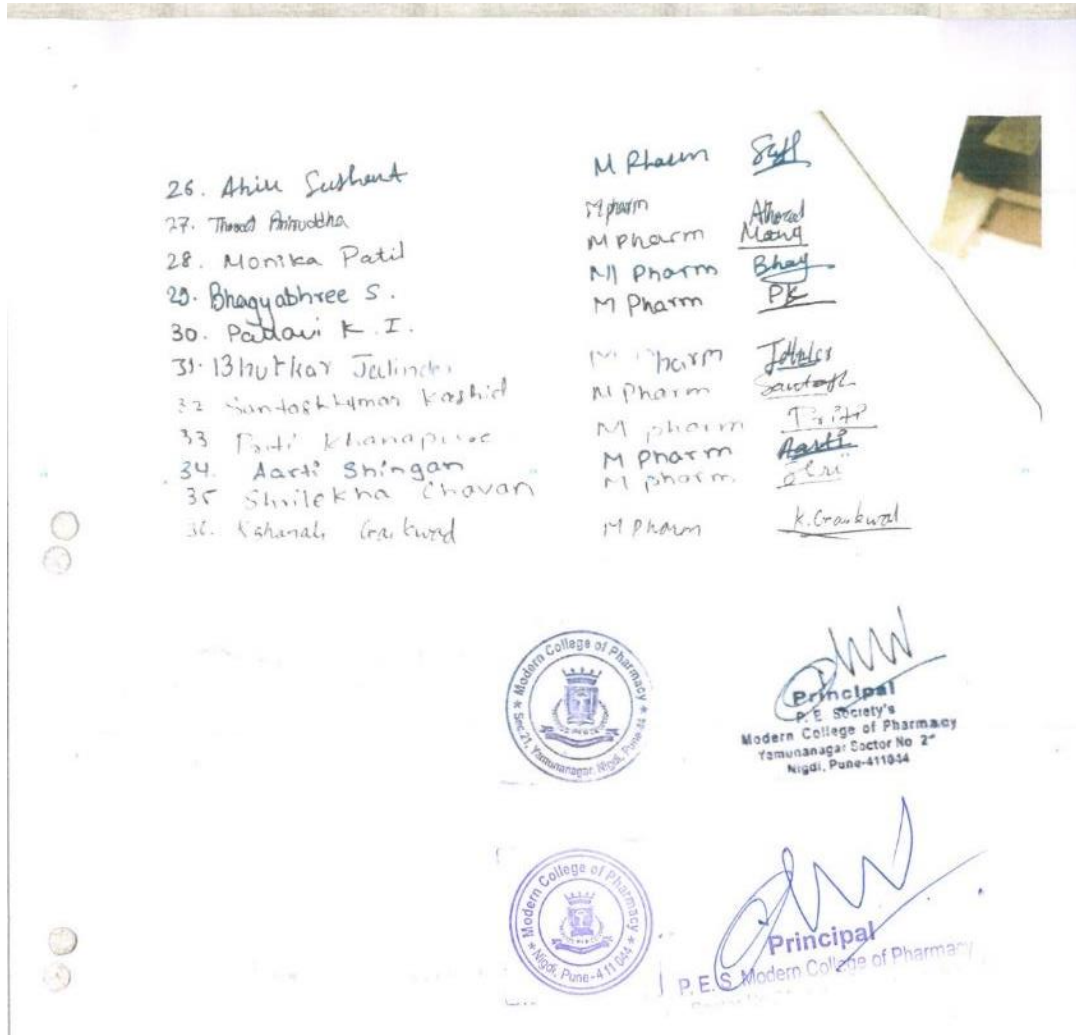 26. Ahire Sushant M Pharm
27. Thorat Aniruddha Mpharm Athorat
28. Monika Patil M Pharm
29. Bhagyabhree S. M Pharm Bhag
30. Pallavi K. I. M Pharm PK
31. Bhutkar Jalinder M Pharm
32 Santoshkumar Kashid M Pharm Santosh
33 Priti Khanapure M pharm Priti
34. Aarti Shingan M Pharm Aarti
35 Shrilekha Chavan M pharm Shri
36. Gaikwad M Pharm K.Gaikwad
Modern College of Pharmacy
Sec.21, Yamunanagar, Nigdi, Pune-44
Principal
P. E. Society's
Modern College of Pharmacy
Yamunanagar Sector No
Nigdi, Pune-411044
Modern College of Pharmacy
Nigdi, Pune-411 044
Principal
P. E. S. Modern College of Pharmacy